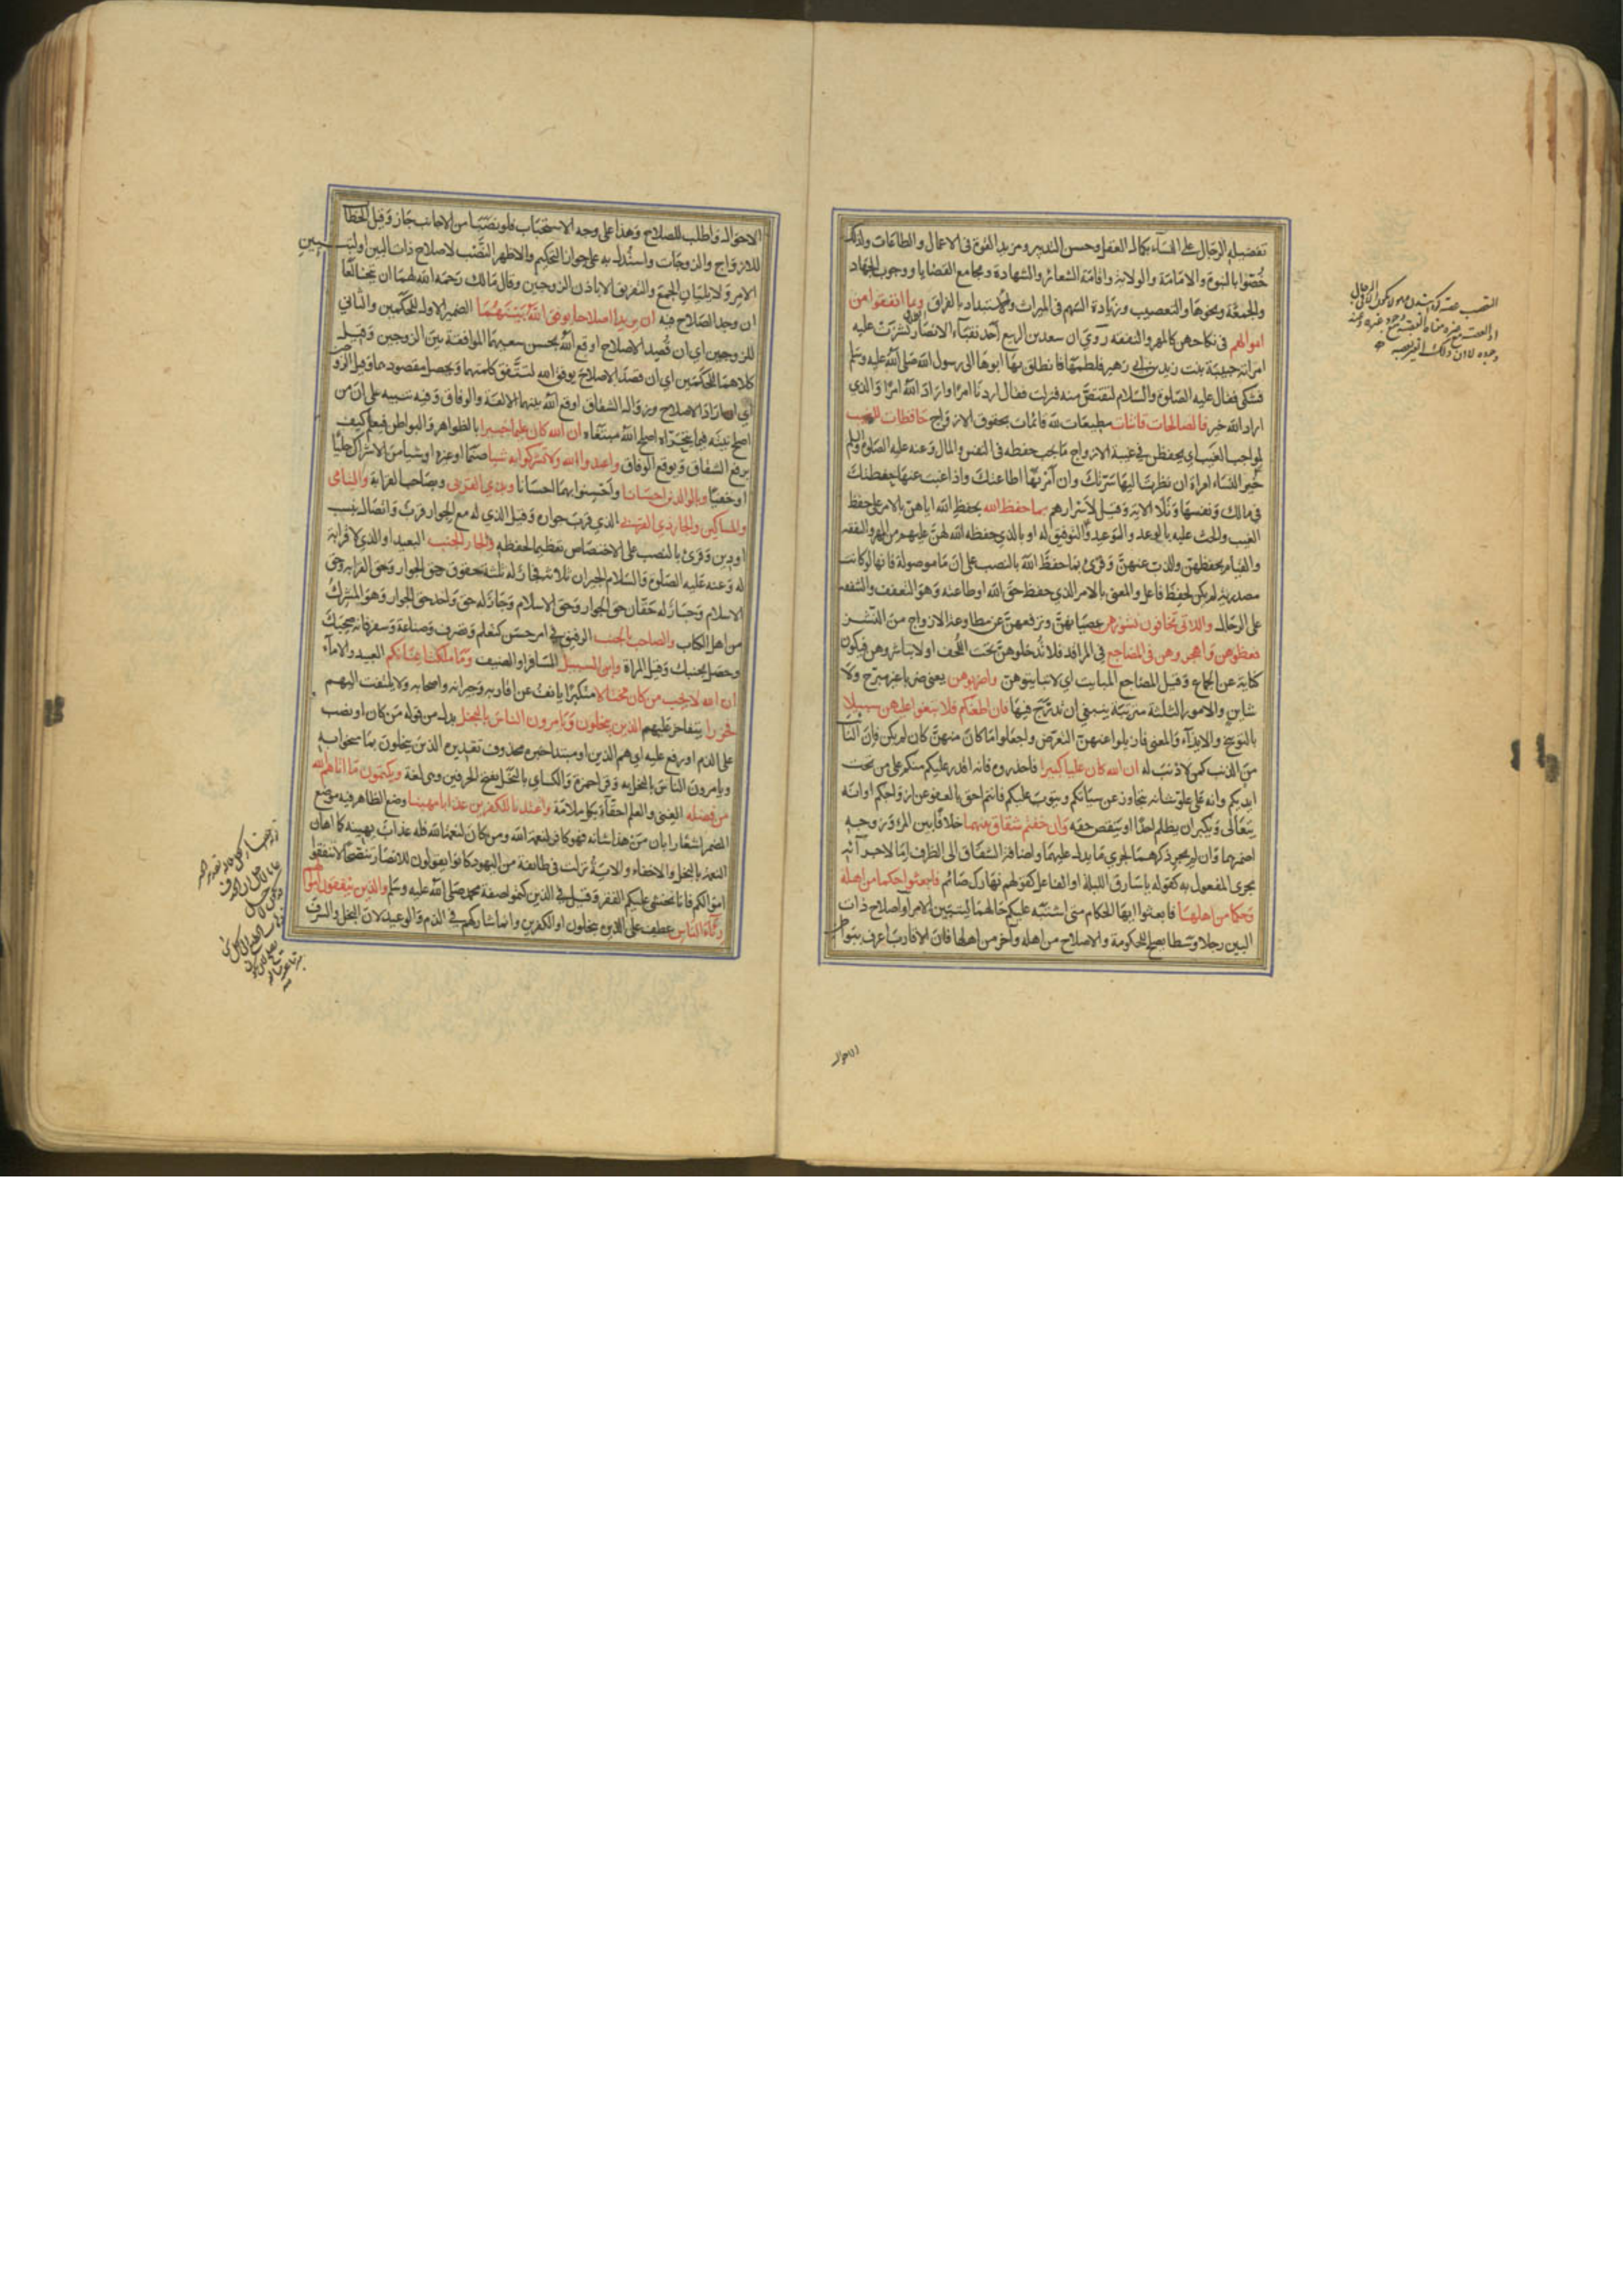 تفضيله الرجال على النساء بكمال العقل وحسن التدبير ومزيد القوة في الاعمال والطاعات ولذلك
خصوا بالنبوة والامامة والولاية واقامة الشعائر والشهادة في مجامع القضايا ووجوب الجهاد
والجمعة ونحوها والتعصيب وزيادة السهم في الميراث والاستبداد بالفراق وبما انفقوا من
اموالهم في نكاحهن كالمهر والنفقة روي ان سعد بن الربيع احد نقباء الانصار نشزت عليه
امراته حبيبة بنت زيد بن ابي زهير فلطمها فانطلق بها ابوها الى رسول الله صلى الله عليه وسلم
فشكى فقال عليه الصلوة والسلام لتقتص منه فنزلت فقال اردنا امرا واراد الله امرا والذي
اراد الله خير فالصالحات قانتات مطيعات لله قائمات بحقوق الازواج حافظات للغيب
لمواجب الغيب اي يحفظن في غيبة الازواج ما يجب حفظه في النفس والمال وعنه عليه الصلوة والسلم
خير النساء امراة ان نظرت اليها سرتك وان امرتها اطاعتك واذا غبت عنها حفظتك
في مالك ونفسها وتلا الاية وقيل لاسرارهم بما حفظ الله بحفظ الله اياهن بالامر على حفظ
الغيب والحث عليه بالوعد والوعيد والتوفيق له او بالذي حفظه الله لهن عليهم من المهر والنفقة
والقيام بحفظهن والذب عنهن وقرئ بما حفظ الله بالنصب على ان ما موصولة فانها لو كانت
مصدرية لم يكن لحفظ فاعل والمعنى بالامر الذي حفظ حق الله او طاعته وهو التعفف والشفقة
على الرجال واللاتي تخافون نشوزهن عصيانهن وترفعهن عن مطاوعة الازواج من النشز
فعظوهن واهجروهن في المضاجع في المراقد فلا تدخلوهن تحت اللحف اولا تباشروهن فيكون
كناية عن الجماع وقيل المضاجع المبايت اي لا تبايتوهن واضربوهن يعني ضربا غير مبرح ولا
شاين والامور الثلثة مترتبة ينبغي ان يدرج فيها فان اطعنكم فلا تبغوا عليهن سبيلا
بالتوبيخ والايذاء والمعنى فازيلوا عنهن التعرض واجعلوا ما كان منهن كان لم يكن فان التائب
من الذنب كمن لا ذنب له ان الله كان عليا كبيرا فاحذروه فانه اقدر عليكم منكم على من تحت
ايديكم وانه على علو شانه يتجاوز عن سيئاتكم ويتوب عليكم فانتم احق بالعفو عن ازواجكم او انه
يتعالى ويتكبر ان يظلم احدا او ينقص حقه وان خفتم شقاق بينهما خلافا بين المرء وزوجه
اضمرهما وان لم يجر ذكرهما لجري ما يدل عليهما واضافة الشقاق الى الظرف اما لاجرائه
مجرى المفعول به كقوله يا سارق الليلة او الفاعل كقولهم نهارك صائم فابعثوا حكما من اهله
وحكما من اهلها فابعثوا ايها الحكام متى اشتبه عليكم حالهما لتبيين الامر او اصلاح ذات
البين رجلا وسطا يصلح للحكومة والاصلاح من اهله وآخر من اهلها فان الاقارب اعرف ببواطن
الاحوال
الاحوال واطلب للصلاح وهذا على وجه الاستحباب فلو نصبا من الاجانب جاز وقيل الخطاب
للازواج والزوجات واستدل به على جواز التحكيم والاظهر ان النصب لاصلاح ذات البين او لتبيين
الامر ولا يليان الجمع والتفريق الا باذن الزوجين وقال مالك رحمه الله لهما ان يتخالعا
ان وجد الصلاح فيه ان يريدا اصلاحا يوفق الله بينهما الضمير الاول للحكمين والثاني
للزوجين اي ان قصد الاصلاح اوقع الله بحسن سعيهما الموافقة بين الزوجين وقيل
كلاهما للحكمين اي ان قصدا الاصلاح يوفق الله لتتفق كلمتهما ويحصل مقصودهما وقيل للزوجين
اي ان ارادا الاصلاح وزوال الشقاق اوقع الله بينهما الالفة والوفاق وفيه تنبيه على ان من
اصلح نيته فيما يتحراه اصلح الله مبتغاه ان الله كان عليما خبيرا بالظواهر والبواطن فيعلم كيف
يرفع الشقاق ويوقع الوفاق واعبدوا الله ولا تشركوا به شيا صنما او غيره او شيا من الاشراك جليا
او خفيا وبالوالدين احسانا واحسنوا بهما احسانا وبذي القربى وبصاحب القرابة واليتامى
والمساكين والجار ذي القربى الذي قرب جواره وقيل الذي له مع الجوار قرب واتصال بنسب
او دين وقرئ بالنصب على الاختصاص تعظيما لحقه والجار الجنب البعيد او الذي لا قرابة
له وعنه عليه الصلوة والسلام الجيران ثلاثة فجار له ثلثة حقوق حق الجوار وحق القرابة وحق
الاسلام وجار له حقان حق الجوار وحق الاسلام وجار له حق واحد حق الجوار وهو المشرك
من اهل الكتاب والصاحب بالجنب الرفيق في امر حسن كتعلم وتصرف وصناعة وسفر فانه صحبك
وحصل بجنبك وقيل المراة وابن السبيل المسافر او الضيف وما ملكت ايمانكم العبيد والاماء
ان الله لا يحب من كان مختالا متكبرا يانف عن اقاربه وجيرانه واصحابه ولا يلتفت اليهم
فخورا يتفاخر عليهم الذين يبخلون ويامرون الناس بالبخل بدل من قوله من كان او نصب
على الذم او رفع عليه اي هم الذين او مبتدا خبره محذوف تقديره الذين يبخلون بما منحوا به
ويامرون الناس بالبخل به وقرا حمزة والكسائي بالبخل بفتح الحرفين وهي لغة ويكتمون ما اتاهم الله
من فضله الغنى والعلم احقاء بكل ملامة واعتدنا للكفرين عذابا مهينا وضع الظاهر فيه موضع
المضمر اشعارا بان من هذا شانه فهو كافر لنعمة الله ومن كان لنعمة الله فله عذاب يهينه كما اهان
النعمة بالبخل والاخفاء والاية نزلت في طايفة من اليهود كانوا يقولون للانصار تنصحا لا تنفقوا
اموالكم فانا نخشى عليكم الفقر وقيل في الذين كتموا صفة محمد صلى الله عليه وسلم والذين ينفقون اموالهم
رئاء الناس عطف على الذين يبخلون او الكفرين وانما شاركهم في الذم والوعيد لان البخل والسرف